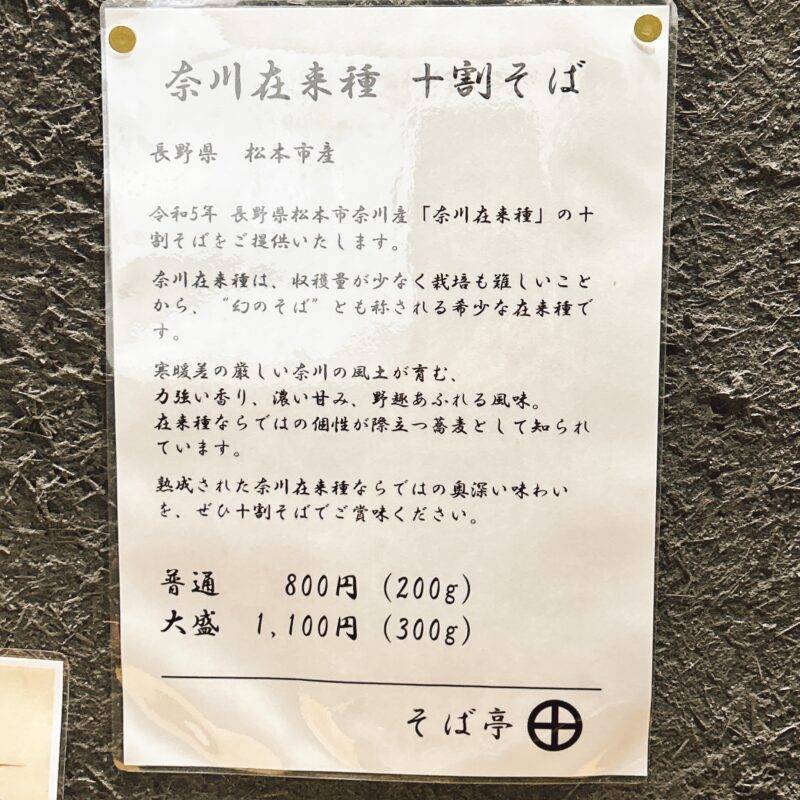 奈川在来種 十割そば
長野県 松本市産
令和5年 長野県松本市奈川産「奈川在来種」の十
割そばをご提供いたします。
奈川在来種は、収穫量が少なく栽培も難しいこと
から、“幻のそば”とも称される希少な在来種で
す。
寒暖差の厳しい奈川の風土が育む、
力強い香り、濃い甘み、野趣あふれる風味。
在来種ならではの個性が際立つ蕎麦として知られ
ています。
熟成された奈川在来種ならではの奥深い味わい
を、ぜひ十割そばでご賞味ください。
普通 800円 (200g)
大盛 1,100円 (300g)
そば亭